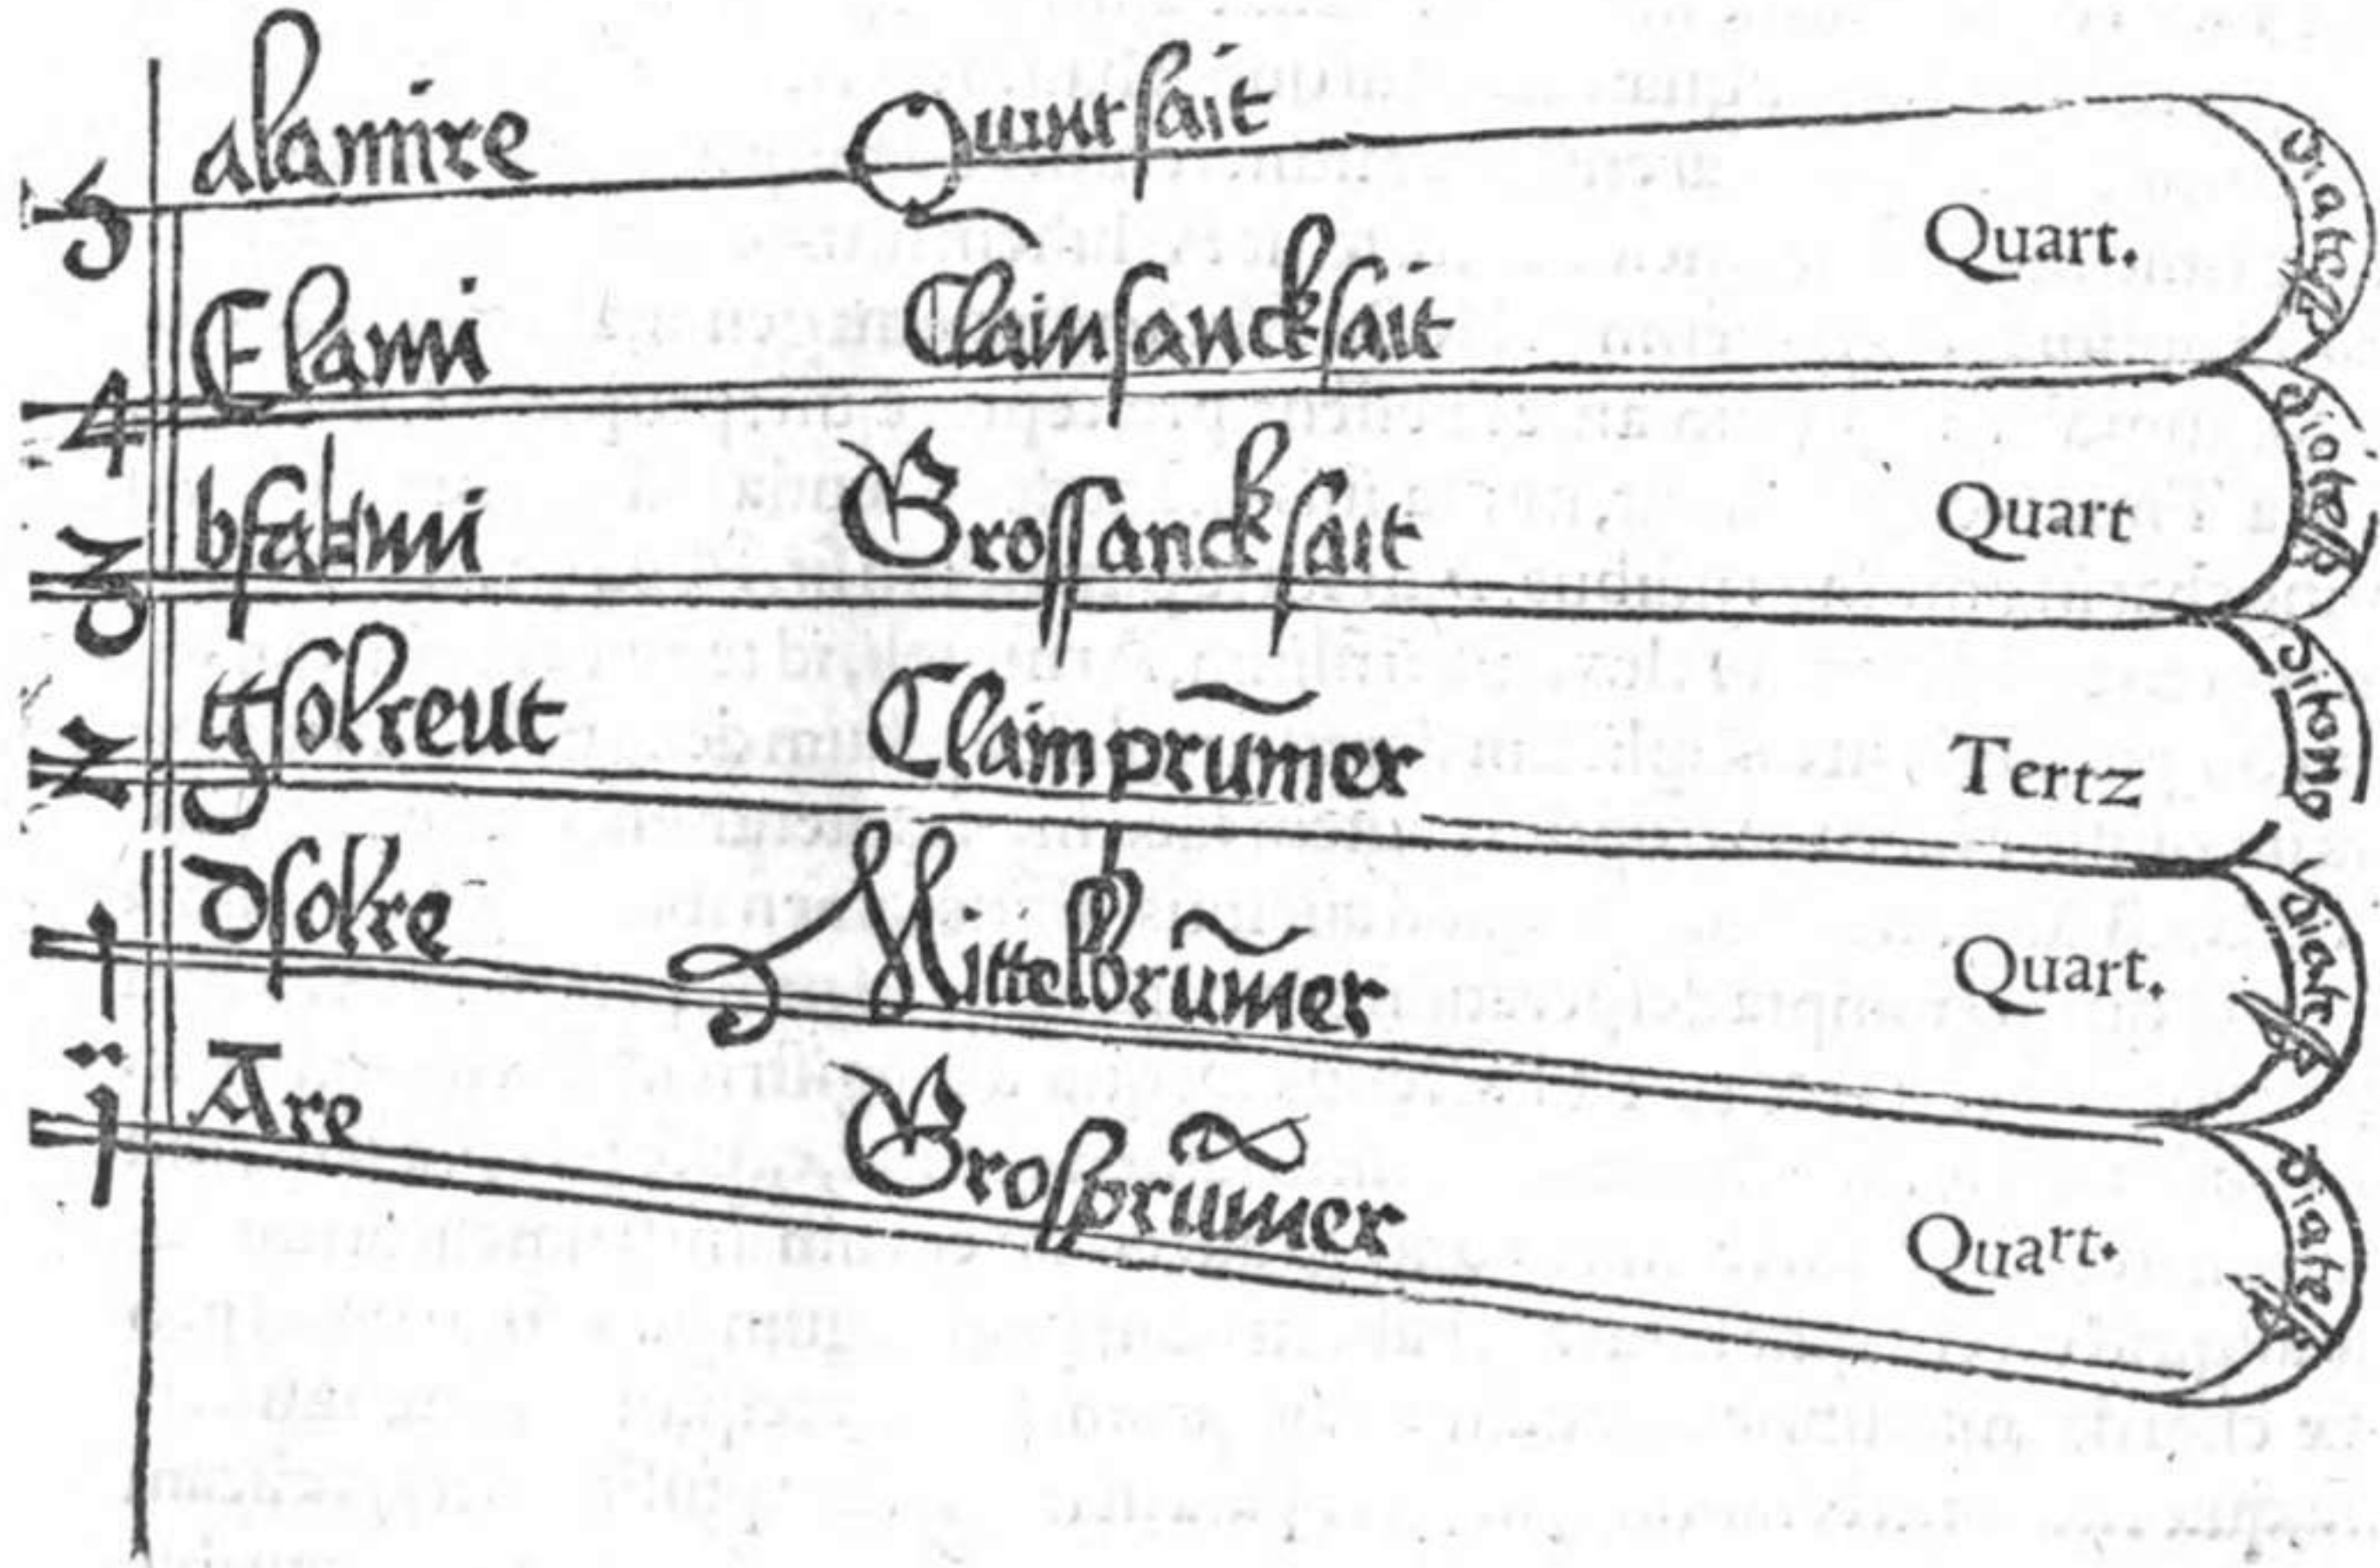 5 alamire Quintsait
Quart. diate
4 Elami Clainsancksait
Quart diate
3 bfa♮mi Grossancksait
Tertz ditono
2 gsolreut Clainprum̃er
Quart. diate
1 dsolre Mittelbrum̃er
Quart. diate
1̈ Are Grosprum̃er